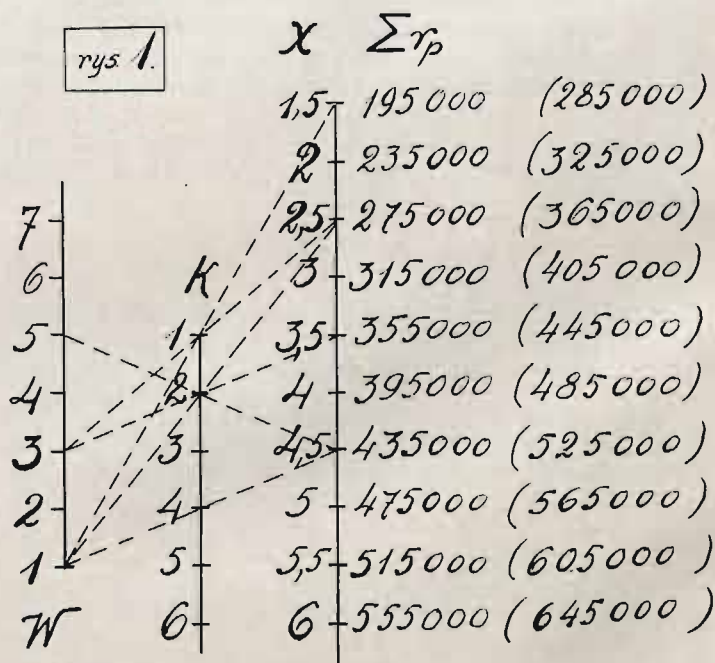 rys. 1.
X Σrp
1,5 195000 (285000)
2 235000 (325000)
7 2,5 275000 (365000)
6 K 3 315000 (405000)
5 1 3,5 355000 (445000)
4 2 4 395000 (485000)
3 3 4,5 435000 (525000)
2 4 5 475000 (565000)
1 5 5,5 515000 (605000)
W 6 6 555000 (645000)